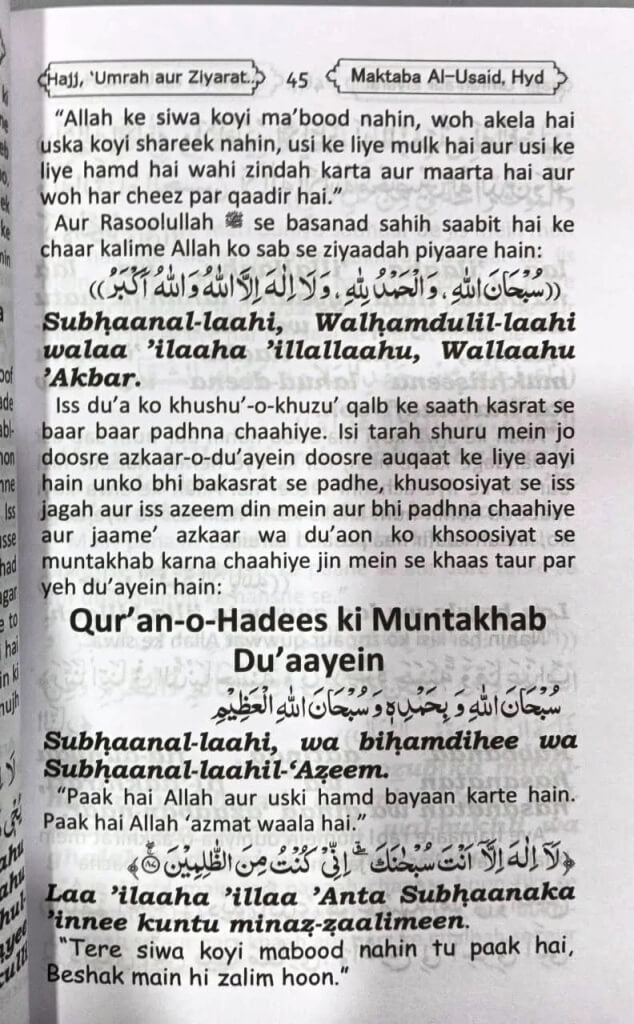 Hajj, ‘Umrah aur Ziyarat.. 45 Maktaba Al-Usaid, Hyd
“Allah ke siwa koyi ma’bood nahin, woh akela hai
uska koyi shareek nahin, usi ke liye mulk hai aur usi ke
liye hamd hai wahi zindah karta aur maarta hai aur
woh har cheez par qaadir hai.”
Aur Rasoolullah ﷺ se basanad sahih saabit hai ke
chaar kalime Allah ko sab se ziyaadah piyaare hain:
((سُبْحَانَ اللهِ، وَالْحَمْدُ لِلهِ، وَلَا إِلٰهَ إِلَّا اللهُ وَاللهُ أَكْبَرُ))
Subḥaanal-laahi, Walḥamdulil-laahi
walaa ’ilaaha ’illallaahu, Wallaahu
’Akbar.
Iss du’a ko khushu’-o-khuzu’ qalb ke saath kasrat se
baar baar padhna chaahiye. Isi tarah shuru mein jo
doosre azkaar-o-du’ayein doosre auqaat ke liye aayi
hain unko bhi bakasrat se padhe, khusoosiyat se iss
jagah aur iss azeem din mein aur bhi padhna chaahiye
aur jaame’ azkaar wa du’aon ko khsoosiyat se
muntakhab karna chaahiye jin mein se khaas taur par
yeh du’ayein hain:
Qur’an-o-Hadees ki Muntakhab
Du’aayein
سُبْحَانَ اللهِ وَ بِحَمْدِهٖ وَ سُبْحَانَ اللهِ الْعَظِيْمِ
Subḥaanal-laahi, wa biḥamdihee wa
Subḥaanal-laahil-‘Aẓeem.
“Paak hai Allah aur uski hamd bayaan karte hain.
Paak hai Allah ‘azmat waala hai.”
﴿لَآ اِلٰهَ اِلَّآ اَنْتَ سُبْحٰنَكَ ۖ اِنِّىْ كُنْتُ مِنَ الظّٰلِمِيْنَ ۝٨٧﴾
Laa ’ilaaha ’illaa ’Anta Subḥaanaka
’innee kuntu minaẓ-ẓaalimeen.
“Tere siwa koyi mabood nahin tu paak hai,
Beshak main hi zalim hoon.”